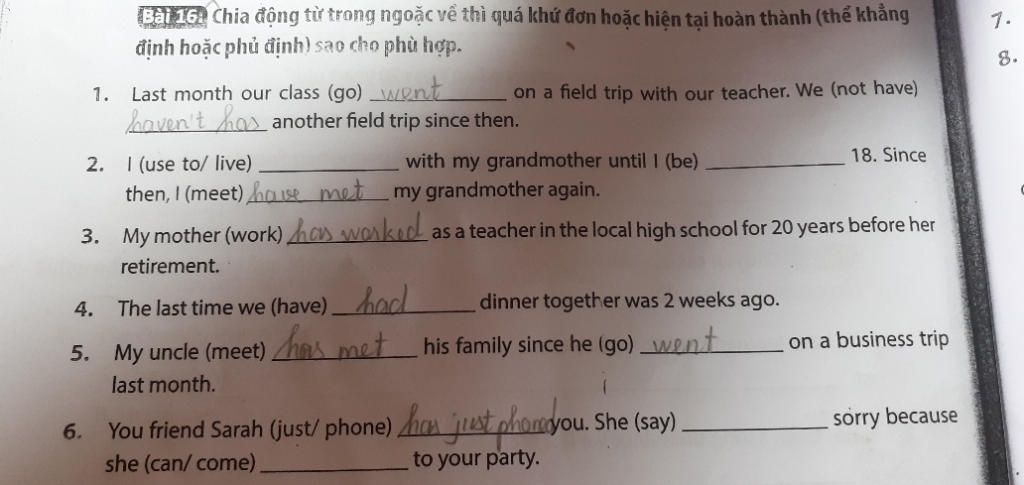 Bài 16: Chia động từ trong ngoặc về thì quá khứ đơn hoặc hiện tại hoàn thành (thể khẳng
định hoặc phủ định) sao cho phù hợp.
1. Last month our class (go) went on a field trip with our teacher. We (not have)
haven't has another field trip since then.
2. I (use to/ live) ____________ with my grandmother until I (be) ____________ 18. Since
then, I (meet) have met my grandmother again.
3. My mother (work) has worked as a teacher in the local high school for 20 years before her
retirement.
4. The last time we (have) had dinner together was 2 weeks ago.
5. My uncle (meet) has met his family since he (go) went on a business trip
last month.
6. You friend Sarah (just/ phone) has just phoned you. She (say) ____________ sorry because
she (can/ come) ____________ to your party.
7.
8.